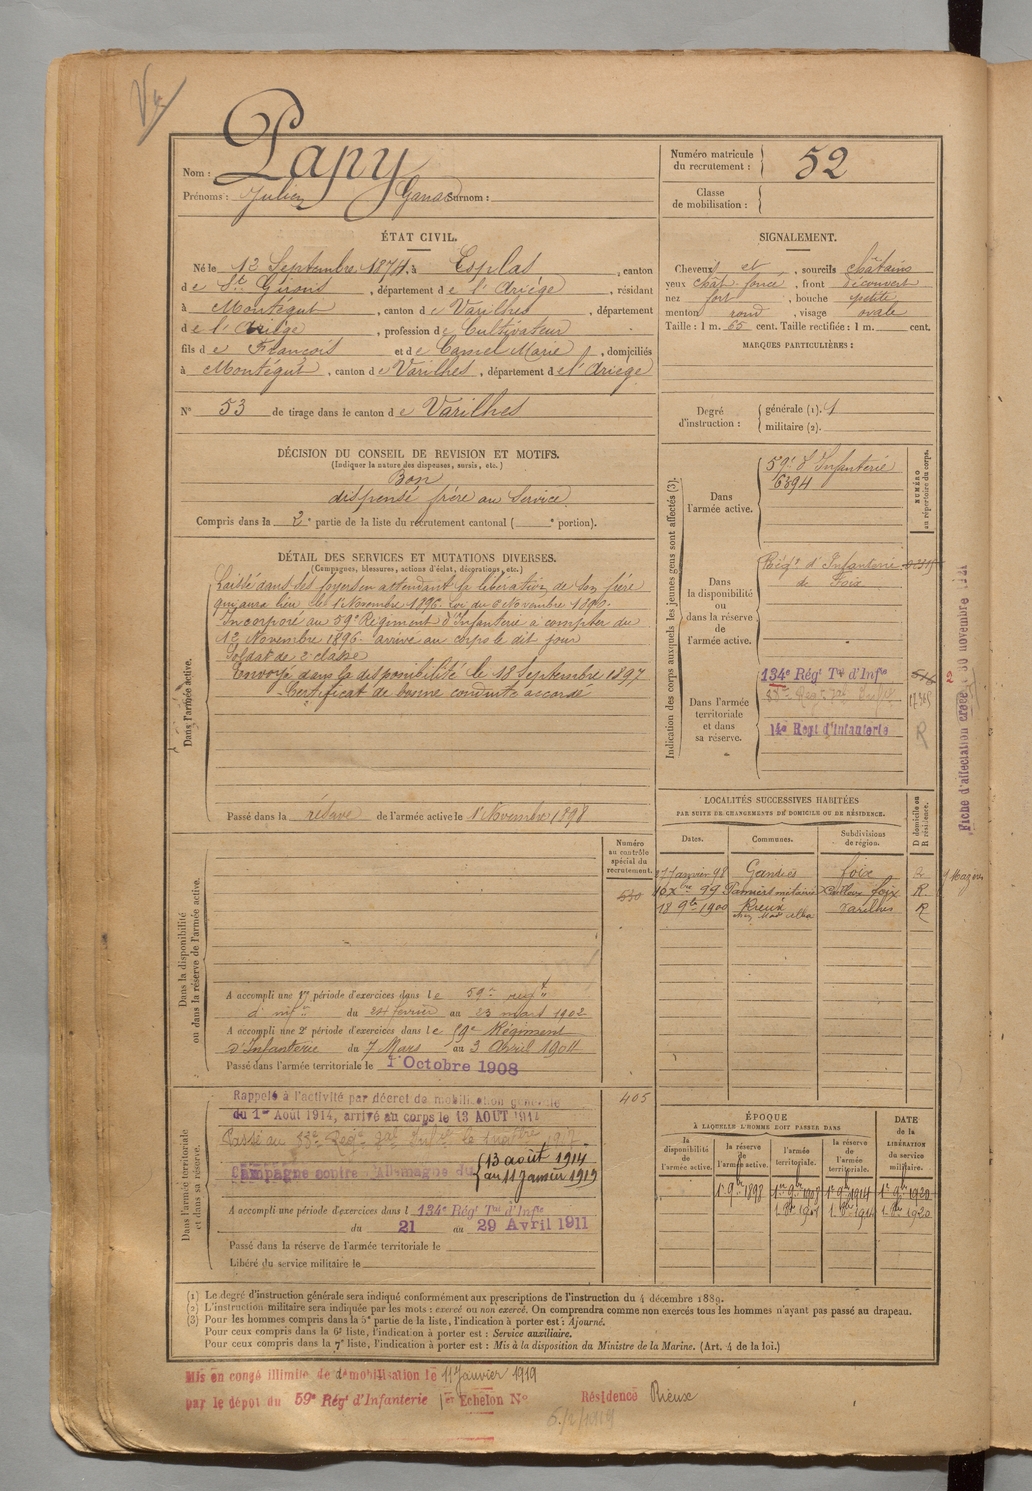 Nom : Papy
Prénoms : Julien Surnom : Ganac
Numéro matricule du recrutement : 52
Classe de mobilisation :
ÉTAT CIVIL.
Né le 12 Septembre 1874, à Esplas, canton
de St Girons, département de l'Ariège, résidant
à Montégut, canton de Varilhes, département
de l'Ariège, profession de Cultivateur
fils de François et de Camel Marie, domiciliés
à Montégut, canton de Varilhes, département de l'Ariège
N° 53 de tirage dans le canton de Varilhes
SIGNALEMENT.
Cheveux et, sourcils châtains
yeux chât. foncé, front découvert
nez fort, bouche petite
menton rond, visage ovale
Taille : 1 m. 65 cent. Taille rectifiée : 1 m. cent.
MARQUES PARTICULIÈRES :
Degré d'instruction : générale (1). 1
militaire (2).
DÉCISION DU CONSEIL DE REVISION ET MOTIFS.
(Indiquer la nature des dispenses, sursis, etc.)
Bon
dispensé frère au Service
Compris dans la 2e partie de la liste du recrutement cantonal ( e portion).
DÉTAIL DES SERVICES ET MUTATIONS DIVERSES.
(Campagnes, blessures, actions d'éclat, décorations, etc.)
Dans l'armée active.
Laissé dans ses foyers en attendant la libération de son frère
qui aura lieu le 1r Novembre 1896. Loi du 6 Novembre 1890.
Incorporé au 59e Régiment d'Infanterie à compter du
12 Novembre 1896 arrivé au corps le dit jour
Soldat de 2e classe
Envoyé dans la disponibilité le 18 Septembre 1897
Certificat de bonne conduite accordé
Passé dans la réserve de l'armée active le 1r Novembre 1898
Indication des corps auxquels les jeunes gens sont affectés (3).
NUMÉRO au répertoire du corps.
Dans l'armée active.
59e d'Infanterie
6394
Dans la disponibilité ou dans la réserve de l'armée active.
Régt d'Infanterie
de Foix
Dans l'armée territoriale et dans sa réserve.
134e Régt Tal d'Infie
14e Regt d'Infanterie
R
LOCALITÉS SUCCESSIVES HABITÉES
PAR SUITE DE CHANGEMENTS DE DOMICILE OU DE RÉSIDENCE.
Dates. Communes. Subdivisions de région. D domicile ou R résidence.
17 Janvier 98 Foix
16 Xbre 99 Pamiers Foix R.
18 9bre 1900 Rieux Varilhes R
Dans la disponibilité ou dans la réserve de l'armée active.
Numéro au contrôle spécial du recrutement.
A accompli une 1re période d'exercices dans le 59e regt
d'infie du 24 février au 23 mars 1902
A accompli une 2e période d'exercices dans le 59e Régiment
d'Infanterie du 7 Mars au 3 Avril 1904
Passé dans l'armée territoriale le 1r Octobre 1908
Dans l'armée territoriale et dans sa réserve.
405
Rappelé à l'activité par décret de mobilisation générale
du 1er Août 1914, arrivé au corps le 13 AOUT 1914
Campagne contre l'Allemagne du 13 août 1914
au 11 Janvier 1919
A accompli une période d'exercices dans l 134e Régt Tal d'Infie
du 21 au 29 Avril 1911
Passé dans la réserve de l'armée territoriale le
Libéré du service militaire le
ÉPOQUE
À LAQUELLE L'HOMME DOIT PASSER DANS
la disponibilité de l'armée active. la réserve de l'armée active. l'armée territoriale. la réserve de l'armée territoriale.
DATE de la LIBÉRATION du service militaire.
1r 9bre 1898 1r 9bre 1908 1r 9bre 1914 1r 9bre 1920
(1) Le degré d'instruction générale sera indiqué conformément aux prescriptions de l'instruction du 4 décembre 1889.
(2) L'instruction militaire sera indiquée par les mots : exercé ou non exercé. On comprendra comme non exercés tous les hommes n'ayant pas passé au drapeau.
(3) Pour les hommes compris dans la 5e partie de la liste, l'indication à porter est : Ajourné.
Pour ceux compris dans la 6e liste, l'indication à porter est : Service auxiliaire.
Pour ceux compris dans la 7e liste, l'indication à porter est : Mis à la disposition du Ministre de la Marine. (Art. 4 de la loi.)
Mis en congé illimité de démobilisation le 11 Janvier 1919
par le dépôt du 59e Régt d'Infanterie 1er Echelon N° Résidence Rieux
Fiche d'affectation 30 novembre